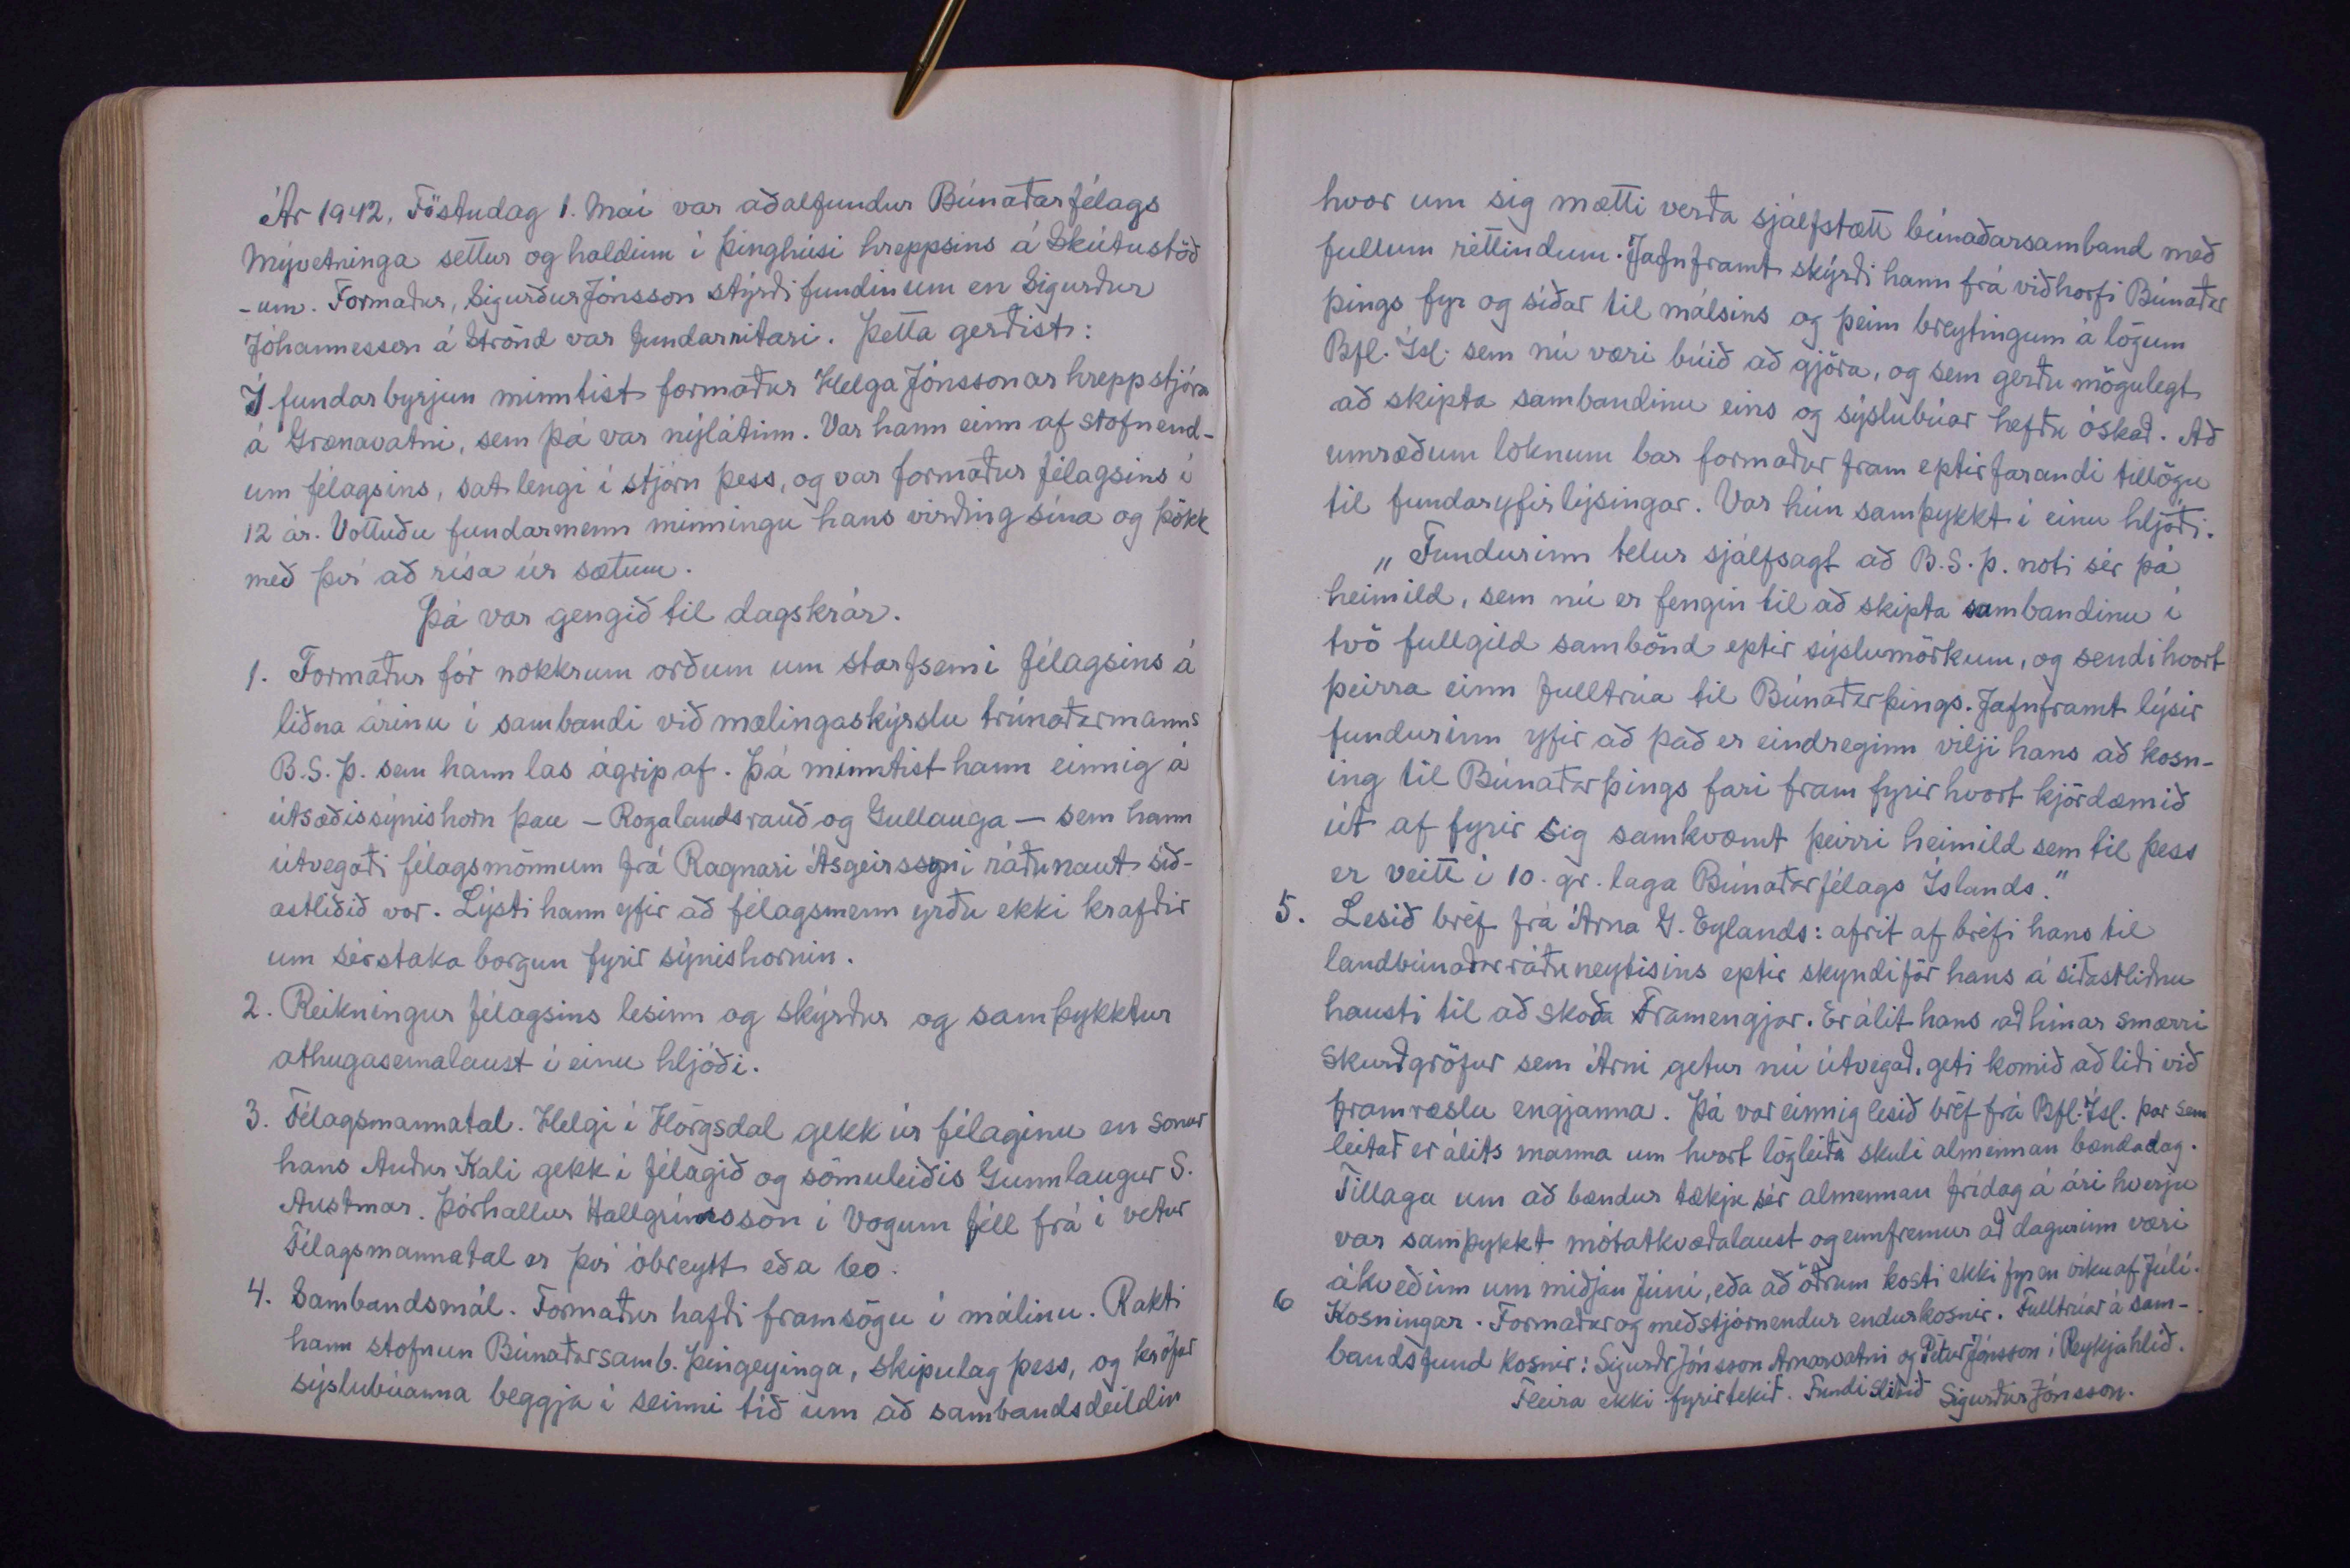 Ár 1942, Föstudag 1. Maí var aðalfundur Búnaðarfélags
Mývetninga settur og haldinn í þinghúsi hreppsins á Skútustöð
-um. Formaður, Sigurður Jónsson stýrði fundinum en Sigurður
Jóhannesson á Strönd var fundarritari. Þetta gerðist:
Í fundarbyrjun minntist formaður Helga Jónssonar hreppstjóra
á Grænavatni, sem þá var nýlátinn. Var hann einn af stofnend-
um félagsins, sat lengi í stjórn þess, og var formaður félagsins í
12 ár. Vottuðu fundarmenn minningu hans virðing sína og þökk
með því að rísa úr sætum.
Þá var gengið til dagskrár.
1. Formaður fór nokkrum orðum um starfsemi félagsins á
liðna árinu í sambandi við mælingaskýrslu trúnaðarmanns
B.S.Þ. sem hann las ágrip af. Þá minntist hann einnig á
útsæðissýnishorn þau - Rogalandsrauð og Gullauga - sem hann
útvegaði félagsmönnum frá Ragnari Ásgeirssyni ráðunaut síð-
astliðið vor. Lýsti hann yfir að félagsmenn yrðu ekki krafðir
um sérstaka borgun fyrir sýnishornin.
2. Reikningur félagsins lesinn og skýrður og samþykktur
athugasemalaust í einu hljóði.
3. Félagsmannatal. Helgi í Hörgsdal gekk úr félaginu en sonur
hans Auður Kali gekk í félagið og sömuleiðis Gunnlaugur S.
Austmar. Þórhallur Hallgrímsson í Vogum féll frá í vetur
Félagsmannatal er því óbreytt eða 60.
4. Sambandsmál. Formaður hafði framsögu í málinu. Rakti
hann stofnun Búnaðarsamb. Þingeyinga, skipulag þess, og kröfur
sýslubúanna beggja í seinni tíð um að sambandsdeildin
hvor um sig mætti verða sjálfstætt búnaðarsamband með
fullum réttindum. Jafnframt skýrði hann frá viðhorfi Búnaðar
þings fyr og síðar til málsins og þeim breytingum á lögum
Bfl. Ísl. sem nú væri búið að gjöra, og sem gerðu mögulegt
að skipta sambandinu eins og sýslubúar hefðu óskað. Að
umræðum loknum bar formaður fram eptirfarandi tillögu
til fundaryfirlýsingar. Var hún samþykkt í einu hljóði.
„Fundurinn telur sjálfsagt að B.S.Þ. noti sér þá
heimild, sem nú er fengin til að skipta sambandinu í
tvö fullgild sambönd eptir sýslumörkum, og sendi hvort
þeirra einn fulltrúa til Búnaðarþings. Jafnframt lýsir
fundurinn yfir að það er eindreginn vilji hans að kosn-
ing til Búnaðarþings fari fram fyrir hvort kjördæmið
út af fyrir sig samkvæmt þeirri heimild sem til þess
er veitt í 10. gr. laga Búnaðarfélags Íslands."
5. Lesið bréf frá Árna G. Eylands: afrit af bréfi hans til
landbúnaðarráðuneytisins eptir skyndiför hans á síðastliðnu
hausti til að skoða Framengjar. Er álit hans að hinar smærri
skurðgröfur sem Árni getur nú útvegað, geti komið að liði við
framræslu engjanna. Þá var einnig lesið bréf frá Bfl. Ísl. þar sem
leitað er álits manna um hvort lögleiða skuli almennan bændadag.
Tillaga um að bændur tækju sér almennan frídag á ári hverju
var samþykkt mótatkvæðalaust og ennfremur að dagurinn væri
ákveðinn um miðjan Júní, eða að öðrum kosti ekki fyr en viku af Júlí.
6 Kosningar. Formaður og meðstjórnendur endurkosnir. Fulltrúar á sam-
bandsfund kosnir: Sigurðr Jónsson Arnarvatni og Pétur Jónsson í Reykjahlíð.
Fleira ekki fyrirtekið. Fundi slitið Sigurður Jónsson.